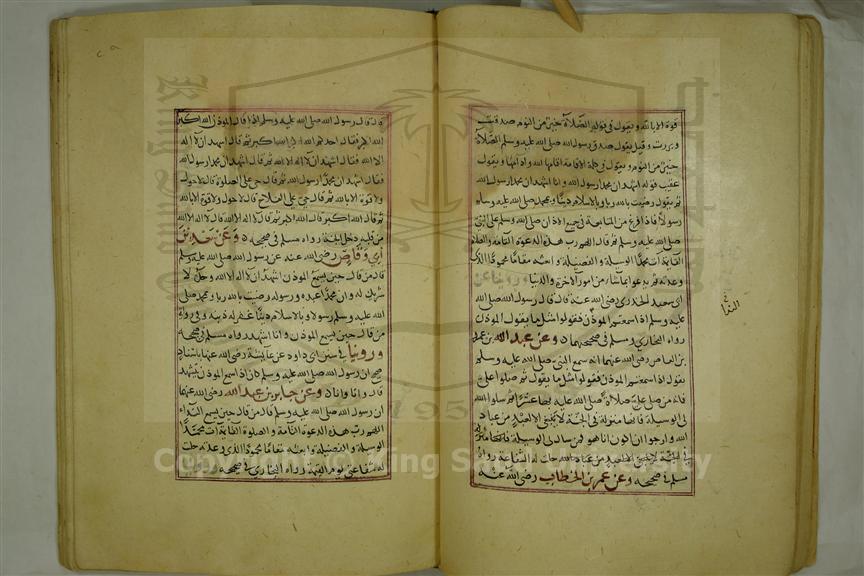 قوة الا بالله ويقول في قوله الصلاة خير من النوم صدقت
وبررت وقيل يقول صدق رسول الله صلى الله عليه وسلم الصلاة
خير من النوم ويقول في كلمة الاقامة اقامها الله وادامها ويقول
عقيب قوله اشهد ان محمدا رسول الله وانا اشهد ان محمدا رسول الله
ثم يقول رضيت بالله ربا وبالاسلام دينا وبمحمد صلى الله عليه وسلم
رسولا فاذا فرغ من المتابعة في جميع الاذان صلى وسلم على النبي
صلى الله عليه وسلم ثم قال اللهم رب هذه الدعوة التامة والصلاة
القايمة آت محمدا الوسيلة والفضيلة وابعثه مقاما محمودا الذي
وعدته ثم يدعو بما شاء من امور الاخرة والدنيا وروينا عن
ابي سعيد الخدري رضي الله عنه قال قال رسول الله صلى الله
عليه وسلم اذا سمعتم الموذن فقولوا مثل ما يقول الموذن
رواه البخاري ومسلم في صحيحيهما وعن عبد الله بن عمرو
بن العاص رضي الله عنهما انه سمع النبي صلى الله عليه وسلم
يقول اذا سمعتم الموذن فقولوا مثل ما يقول ثم صلوا علي
فانه من صلى علي صلاة صلى الله عليه بها عشرا ثم سلوا الله
لي الوسيلة فانها منزلة في الجنة لا تنبغي الا لعبد من عباد
الله وارجوا ان اكون انا هو فمن سال لي الوسيلة
حلت له الشفاعة رواه
مسلم في صحيحه وعن عمر بن الخطاب رضي الله عنه
قال قال رسول الله صلى الله عليه وسلم اذا قال الموذن الله اكبر
الله اكبر فقال احدكم الله اكبر الله اكبر ثم قال اشهد ان لا اله
الا الله فقال اشهد ان لا اله الا الله ثم قال اشهد ان محمدا رسول الله
فقال اشهد ان محمدا رسول الله ثم قال حي على الصلوة قال لا حول
ولا قوة الا بالله ثم قال حي على الفلاح قال لا حول ولا قوة الا بالله
ثم قال الله اكبر قال الله اكبر ثم قال لا اله الا الله قال لا اله الا الله
من قلبه دخل الجنة رواه مسلم في صحيحه وعن سعد بن
ابي وقاص رضي الله عنه عن رسول الله صلى الله عليه وسلم
قال من قال حين يسمع الموذن اشهد ان لا اله الا الله وحده لا
شريك له وان محمدا عبده ورسوله رضيت بالله ربا وبمحمد صلى
الله عليه وسلم رسولا وبالاسلام دينا غفر له ذنبه وفي رواية
من قال حين يسمع الموذن وانا اشهد رواه مسلم في صحيحه
وروينا في سنن ابي داود عن عايشة رضي الله عنها باسناد
صحيح ان رسول الله صلى الله عليه وسلم كان اذا سمع الموذن يتشهد
قال وانا وانا وعن جابر بن عبد الله رضي الله عنهما
ان رسول الله صلى الله عليه وسلم قال من قال حين يسمع النداء
اللهم رب هذه الدعوة التامة والصلوة القايمة آت محمدا
الوسيلة والفضيلة وابعثه مقاما محمودا الذي وعدته حلت
له شفاعتي يوم القيمة رواه البخاري في صحيحه
Copyright © King Saud University
1957